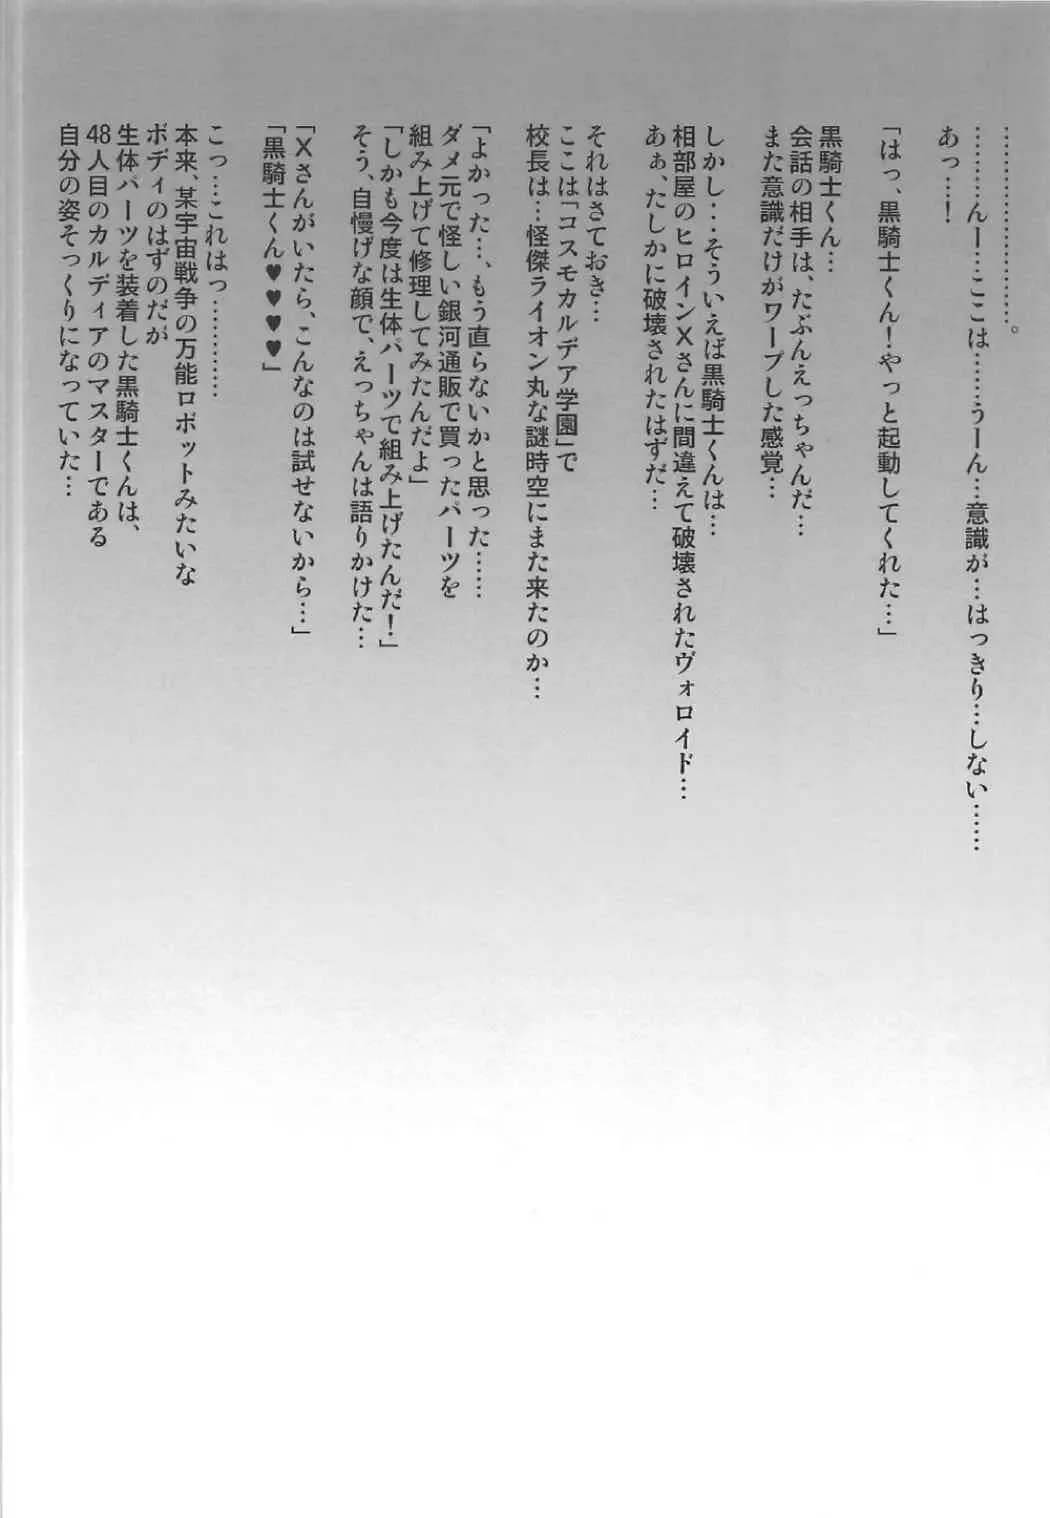 …………………。
………んー…ここは……うーん…意識が…はっきり…しない……
あっ…！
「はっ、黒騎士くん！やっと起動してくれた…」
黒騎士くん…
会話の相手は、たぶんえっちゃんだ…
また意識だけがワープした感覚…
しかし…そういえば黒騎士くんは…
相部屋のヒロインXさんに間違えて破壊されたヴォロイド…
あぁ、たしかに破壊されたはずだ…
それはさておき…
ここは「コスモカルデア学園」で
校長は…怪傑ライオン丸な謎時空にまた来たのか…
「よかった…、もう直らないかと思った……
ダメ元で怪しい銀河通販で買ったパーツを
組み上げて修理してみたんだよ」
「しかも今度は生体パーツで組み上げたんだ！」
そう、自慢げな顔で、えっちゃんは語りかけた…
「Xさんがいたら、こんなのは試せないから…」
「黒騎士くん♥♥♥♥」
こっ…これはっ…………
本来、某宇宙戦争の万能ロボットみたいな
ボディのはずのだが
生体パーツを装着した黒騎士くんは、
48人目のカルディアのマスターである
自分の姿そっくりになっていた…